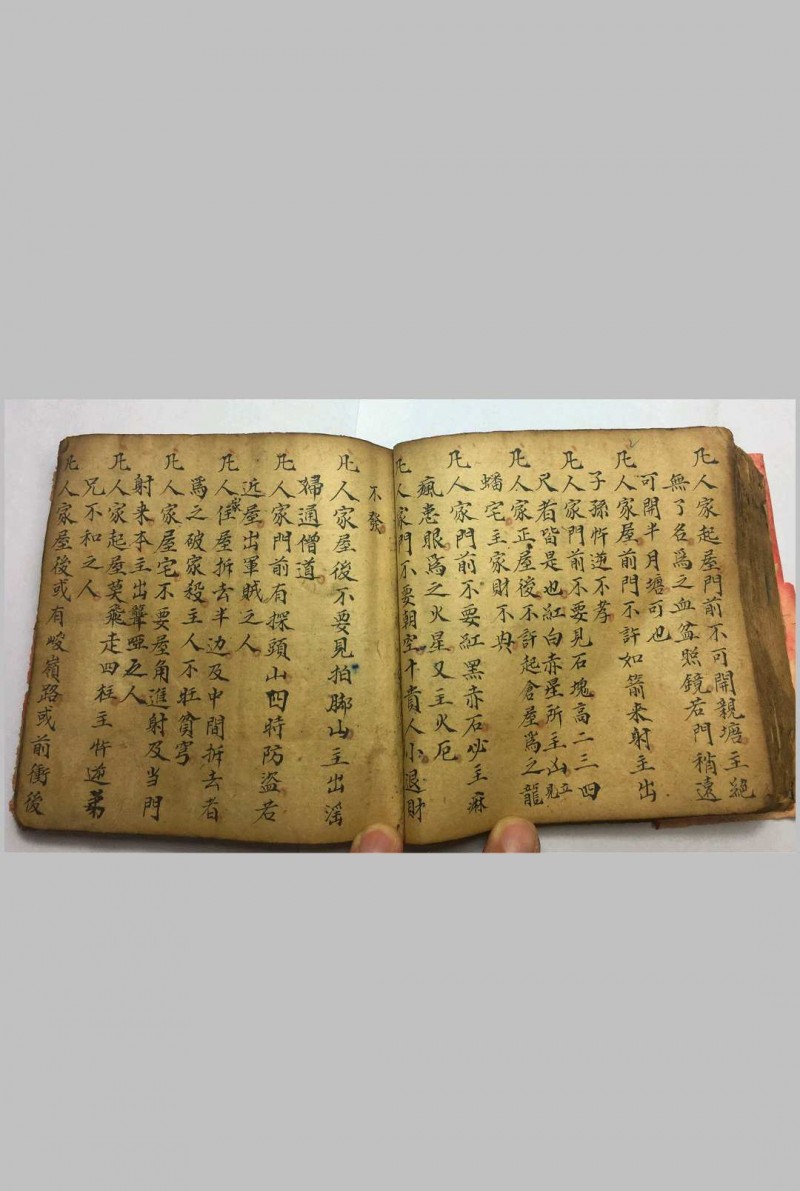 凡人家起屋門前不可開親塘主絕
無了名為之血盆照鏡若門稍遠
可開半月塘可也
凡人家屋前門不許如箭来射主出
子孫忤逆不孝
凡人家門前不要見石塊高二三四
尺者皆是也紅白赤星所主凶立見
凡人家正屋後不許起倉屋為之龍
蟠宅主家財不興
凡人家門前不要紅黑赤石必主麻
瘋患眼為之火星又主火厄
凡人家門不要朝空十賁人小退財
不發
凡人家屋後不要見拍脚山主出滛
婦通僧道
凡人家門前有探頭山四時防盗若
近屋出軍賊之人
凡人家住屋拆去半边及中間拆去者
為之破家殺主人不旺貧窮
凡人家屋宅不要屋角進射及当門
射来本主出聾啞之人
凡人家起屋莫飛走四柱主忤逆弟
兄不和之人
凡人家屋後或有峻嶺路或前衝後